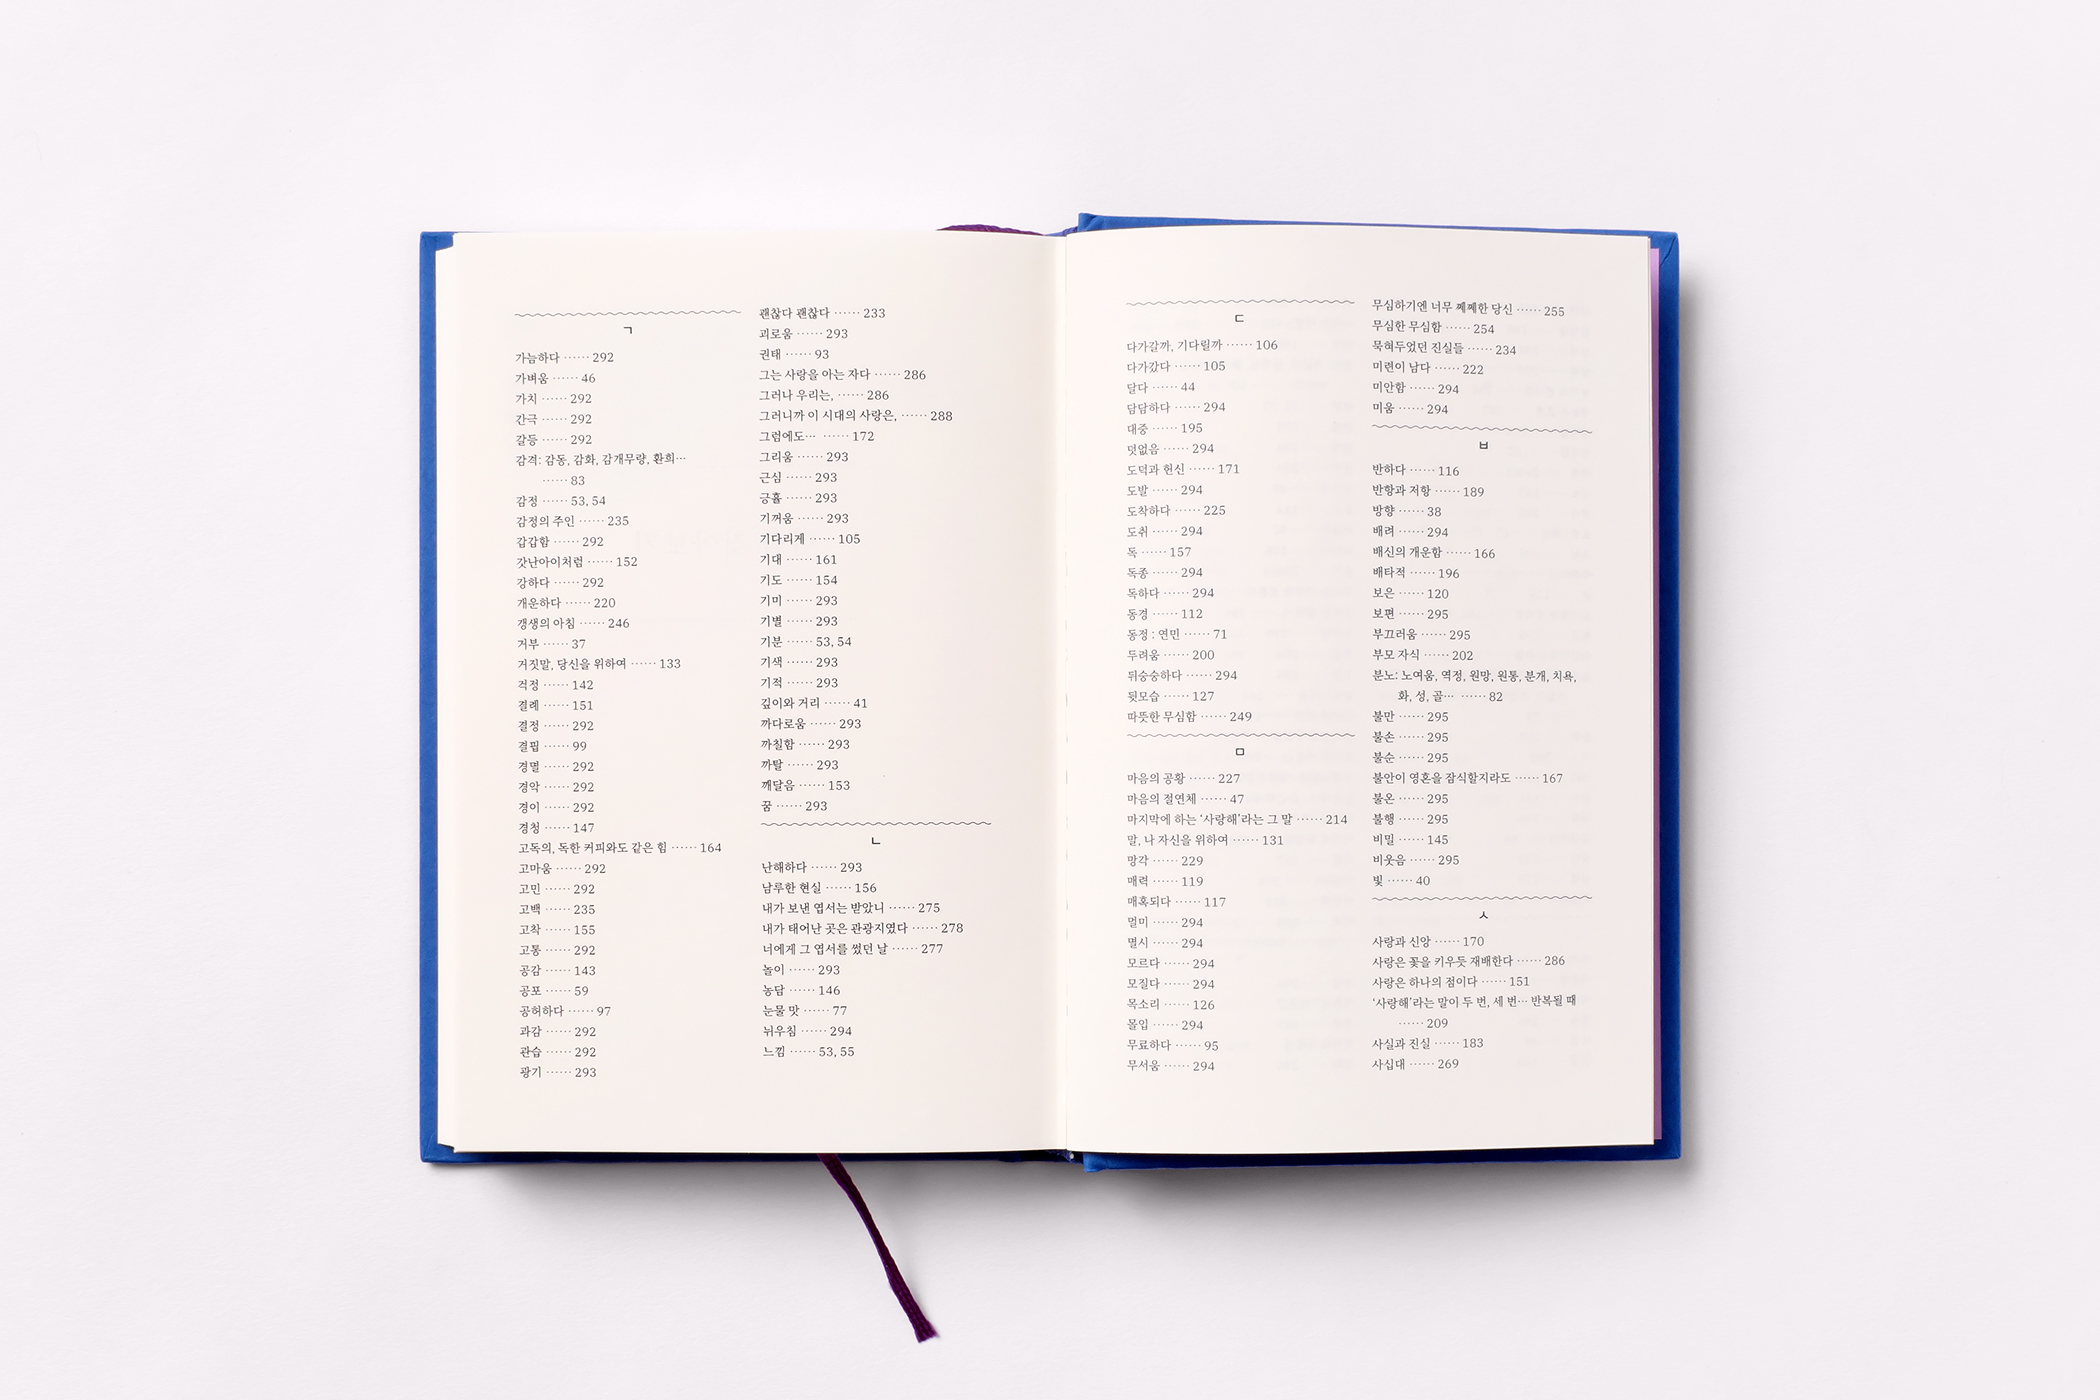 ㄱ
가늠하다 …… 292
가벼움 …… 46
가치 …… 292
간극 …… 292
갈등 …… 292
감격: 감동, 감화, 감개무량, 환희…
…… 83
감정 …… 53, 54
감정의 주인 …… 235
갑갑함 …… 292
갓난아이처럼 …… 152
강하다 …… 292
개운하다 …… 220
갱생의 아침 …… 246
거부 …… 37
거짓말, 당신을 위하여 …… 133
걱정 …… 142
결례 …… 151
결정 …… 292
결핍 …… 99
경멸 …… 292
경악 …… 292
경이 …… 292
경청 …… 147
고독의, 독한 커피와도 같은 힘 …… 164
고마움 …… 292
고민 …… 292
고백 …… 235
고착 …… 155
고통 …… 292
공감 …… 143
공포 …… 59
공허하다 …… 97
과감 …… 292
관습 …… 292
광기 …… 293
괜찮다 괜찮다 …… 233
괴로움 …… 293
권태 …… 93
그는 사랑을 아는 자다 …… 286
그러나 우리는, …… 286
그러니까 이 시대의 사랑은, …… 288
그럼에도… …… 172
그리움 …… 293
근심 …… 293
긍휼 …… 293
기꺼움 …… 293
기다리게 …… 105
기대 …… 161
기도 …… 154
기미 …… 293
기별 …… 293
기분 …… 53, 54
기색 …… 293
기적 …… 293
깊이와 거리 …… 41
까다로움 …… 293
까칠함 …… 293
까탈 …… 293
깨달음 …… 153
꿈 …… 293
ㄴ
난해하다 …… 293
남루한 현실 …… 156
내가 보낸 엽서는 받았니 …… 275
내가 태어난 곳은 관광지였다 …… 278
너에게 그 엽서를 썼던 날 …… 277
놀이 …… 293
농담 …… 146
눈물 맛 …… 77
뉘우침 …… 294
느낌 …… 53, 55
ㄷ
다가갈까, 기다릴까 …… 106
다가갔다 …… 105
달다 …… 44
담담하다 …… 294
대중 …… 195
덧없음 …… 294
도덕과 헌신 …… 171
도발 …… 294
도착하다 …… 225
도취 …… 294
독 …… 157
독종 …… 294
독하다 …… 294
동경 …… 112
동정 : 연민 …… 71
두려움 …… 200
뒤숭숭하다 …… 294
뒷모습 …… 127
따뜻한 무심함 …… 249
ㅁ
마음의 공황 …… 227
마음의 절연체 …… 47
마지막에 하는 ‘사랑해’라는 그 말 …… 214
말, 나 자신을 위하여 …… 131
망각 …… 229
매력 …… 119
매혹되다 …… 117
멀미 …… 294
멸시 …… 294
모르다 …… 294
모질다 …… 294
목소리 …… 126
몰입 …… 294
무료하다 …… 95
무서움 …… 294
무심하기엔 너무 쩨쩨한 당신 …… 255
무심한 무심함 …… 254
묵혀두었던 진실들 …… 234
미련이 남다 …… 222
미안함 …… 294
미움 …… 294
ㅂ
반하다 …… 116
반항과 저항 …… 189
방향 …… 38
배려 …… 294
배신의 개운함 …… 166
배타적 …… 196
보은 …… 120
보편 …… 295
부끄러움 …… 295
부모 자식 …… 202
분노: 노여움, 역정, 원망, 원통, 분개, 치욕,
화, 성, 골… …… 82
불만 …… 295
불손 …… 295
불순 …… 295
불안이 영혼을 잠식할지라도 …… 167
불온 …… 295
불행 …… 295
비밀 …… 145
비웃음 …… 295
빛 …… 40
ㅅ
사랑과 신앙 …… 170
사랑은 꽃을 키우듯 재배한다 …… 286
사랑은 하나의 점이다 …… 151
‘사랑해’라는 말이 두 번, 세 번… 반복될 때
…… 209
사실과 진실 …… 183
사십대 …… 269